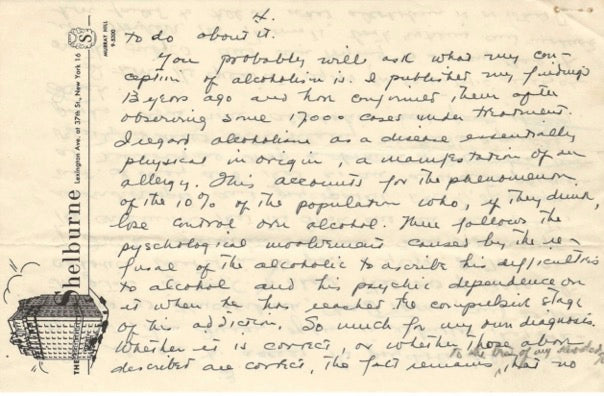 4.
to do about it.
You probably will ask what my con-
ception of alcoholism is. I published my findings
13 years ago and have confirmed them after
observing some 17000 cases under treatment.
I regard alcoholism as a disease essentially
physical in origin, a manifestation of an
allergy. This accounts for the phenomenon
of the 10% of the population who, if they drink,
lose control over alcohol. There follows the
pyschological involvement caused by the re-
fusal of the alcoholic to ascribe his difficulties
to alcohol and his psychic dependence on
it when he has reached the compulsive stage
of his addiction. So much for my own diagnosis.
Whether it is correct, or whether those above
to the best of my knowledge
described are correct, the fact remains, that no
THE Shelburne
Lexington Ave. at 37th St., New York 16
S
MURRAY HILL
9-5200